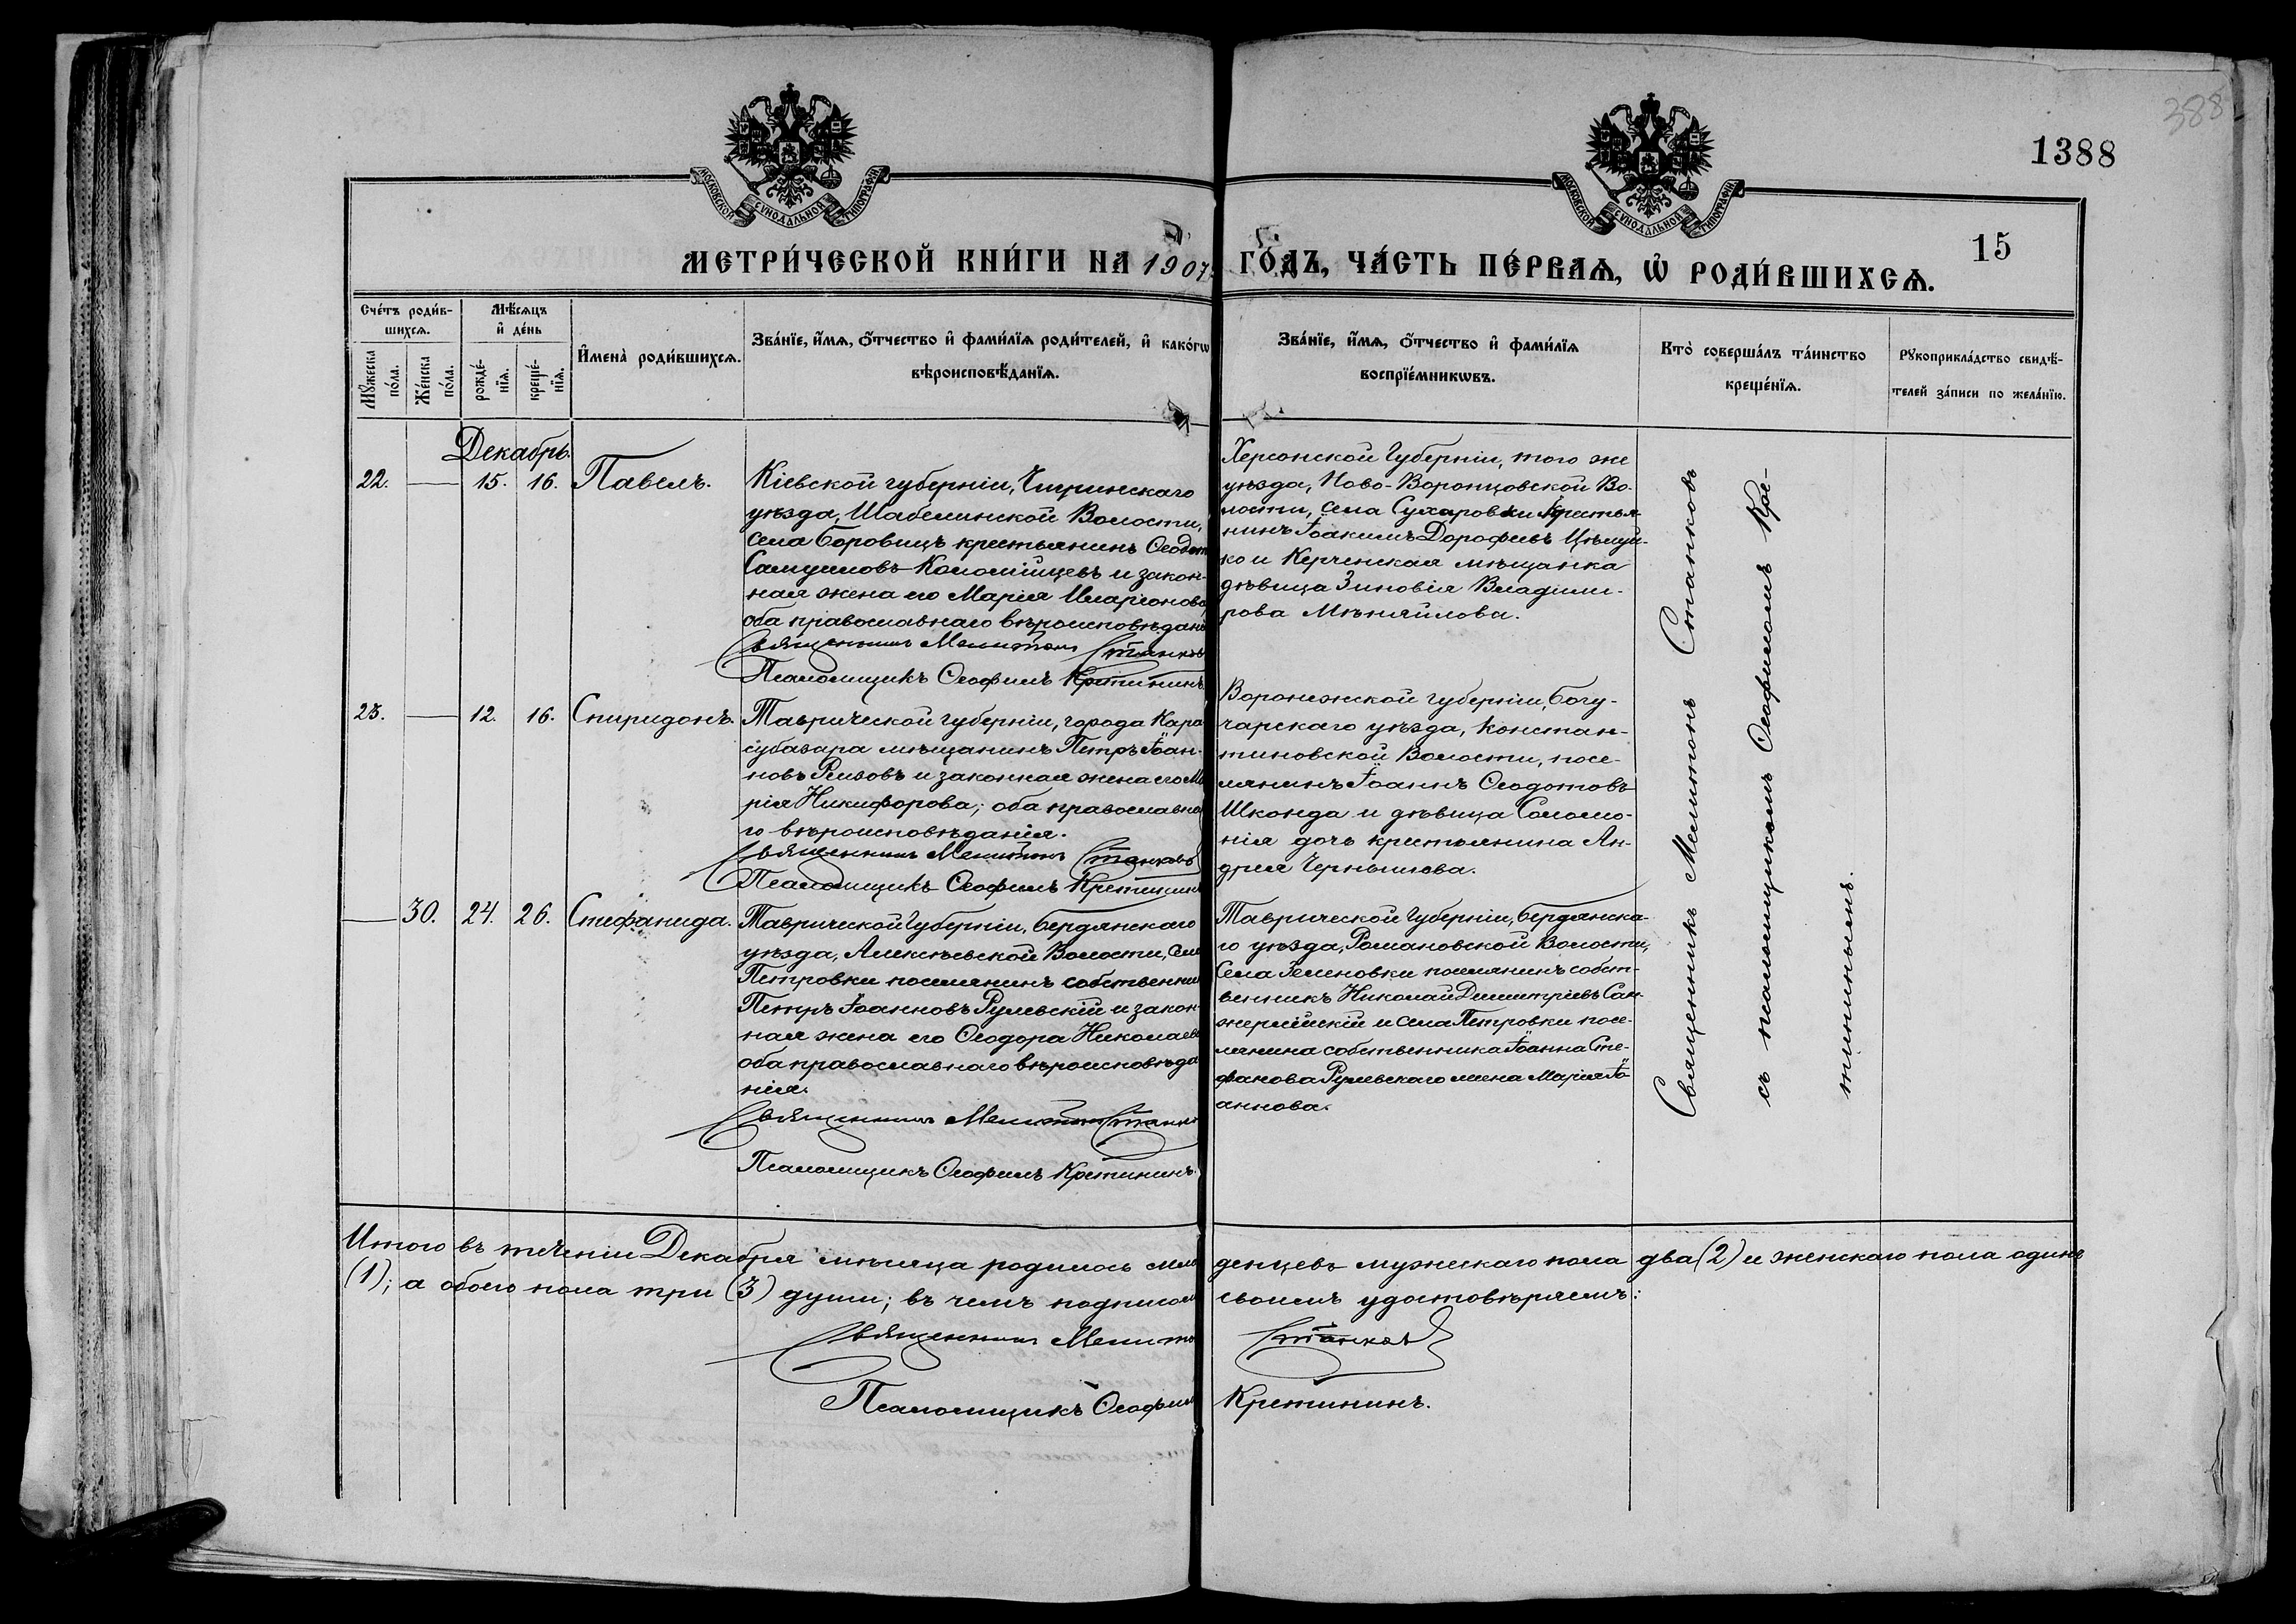 388
1388
МОСКОВСКОЙ СѴНОДАЛЬНОЙ ТИПОГРАФІИ
МОСКОВСКОЙ СѴНОДАЛЬНОЙ ТИПОГРАФІИ
15
МЕТРИ́ЧЕСКОЙ КНИ́ГИ НА 1907 ГО́ДЪ, ЧА́СТЬ ПЕ́РВАѦ, Ѡ҆ РОДИ́ВШИХСѦ.
Сче́тъ роди́в-
шихсѧ.
Мꙋ́жеска
по́ла.
Же́нска
по́ла.
Мѣ́сѧцъ
и҆ де́нь
рожде́-
нїѧ.
креще́-
нїѧ.
И҆мена̀ роди́вшихсѧ.
Зва́нїе, и҆́мѧ, ѻ҆́тчество и҆ фами́лїѧ роди́телей, и҆ како́гѡ
вѣроисповѣ́данїѧ.
Зва́нїе, и҆́мѧ, ѻ҆́тчество и҆ фами́лїѧ
воспрїе́мникѡвъ.
Кто̀ соверша́лъ та́инство
креще́нїѧ.
Рꙋкоприкла́дство свидѣ́-
телей за́писи по жела́нїю.
Декабрь.
22. — 15. 16. Павелъ.
Кіевской губерніи, Чигринскаго
уѣзда, Шабелинской Волости,
села Боровицъ крестьянинъ Ѳеодот
Самуиловъ Коломійцевъ и закон-
ная жена его Марія Иларіонова,
оба православнаго вѣроисповѣдані
Священникъ Мелитонъ Станковъ
Псаломщикъ Ѳеофилъ Кретининъ.
Херсонской Губерніи, того же
уѣзда, Ново-Воронцовской Во-
лости, села Сухаровки крестья-
нинъ Іоакимъ Дорофеевъ
ко и Керченская мѣщанка
дѣвица Зиновія Владими-
рова Мѣняйлова.
23. — 12. 16. Спиридонъ.
Таврической губерніи, города Кара
субазара мѣщанинъ Петръ Іоан-
новъ Ремзовъ и законная жена его Ма
рія Никифорова; оба православна
го вѣроисповѣданія.
Священникъ Мелитонъ Станковъ
Псаломщикъ Ѳеофилъ Кретинин
Воронежской губерніи, Богу-
чарскаго уѣзда, Констан-
тиновской Волости, посе-
лянинъ Іоаннъ Ѳеодотовъ
Шконда и дѣвица Соломо-
нія дочь крестьянина Ан-
дрея Чернышова.
— 30. 24. 26. Стефанида.
Таврической Губерніи, Бердянскаго
уѣзда, Алексѣевской Волости, села
Петровки поселянинъ собственни
Петръ Іоанновъ Рулевскій и закон-
ная жена его Ѳеодора Николаев
оба православнаго вѣроисповѣда
нія.
Священникъ Мелитонъ Станко
Псаломщикъ Ѳеофилъ Кретининъ.
Таврической Губерніи, Бердянска-
го уѣзда, Романовской Волости,
села Зеленовки поселянинъ собст-
венникъ Николай Димитріевъ Сан-
жерлійскій и села Петровки посе-
лянина собственника Іоанна Сте-
фанова Рулевскаго жена Марія Іо-
аннова.
Священникъ Мелитонъ Станковъ
съ псаломщикомъ Ѳеофиломъ Кре-
тининымъ.
Итого въ теченіи Декабря мѣсяца родилось мла денцевъ мужескаго пола два (2) и женскаго пола одинъ
(1); а обоего пола три (3) души; въ чемъ подписом своимъ удостовѣряемъ:
Священникъ Мелито Станковъ
Псаломщикъ Ѳеофил Кретининъ.